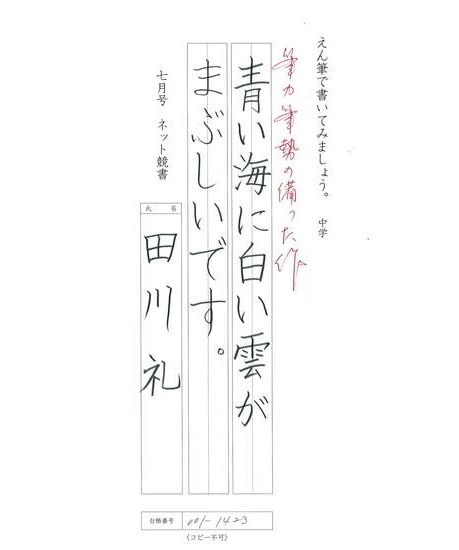 えん筆で書いてみましょう。 中学
筆力筆勢の備った作
青い海に白い雲が
まぶしいです。
七月号 ネット競書
氏名
田川礼
台帳番号 001-1423
(コピー不可)